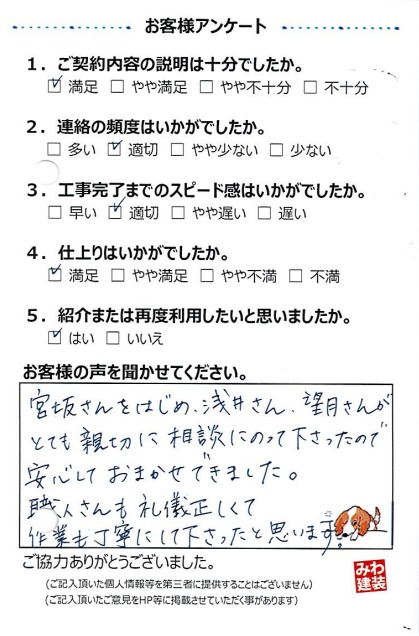 お客様アンケート
1．ご契約内容の説明は十分でしたか。
☑ 満足 □ やや満足 □ やや不十分 □ 不十分
2．連絡の頻度はいかがでしたか。
□ 多い ☑ 適切 □ やや少ない □ 少ない
3．工事完了までのスピード感はいかがでしたか。
□ 早い ☑ 適切 □ やや遅い □ 遅い
4．仕上りはいかがでしたか。
☑ 満足 □ やや満足 □ やや不満 □ 不満
5．紹介または再度利用したいと思いましたか。
☑ はい □ いいえ
お客様の声を聞かせてください。
宮坂さんをはじめ、浅井さん、望月さんが
とても親切に相談にのって下さったので
安心しておまかせできました。
職人さんも礼儀正しくて
作業も丁寧にして下さったと思います。
ご協力ありがとうございました。
（ご記入頂いた個人情報等を第三者に提供することはございません）
（ご記入頂いたご意見をHP等に掲載させていただく事があります）
みわ
建装